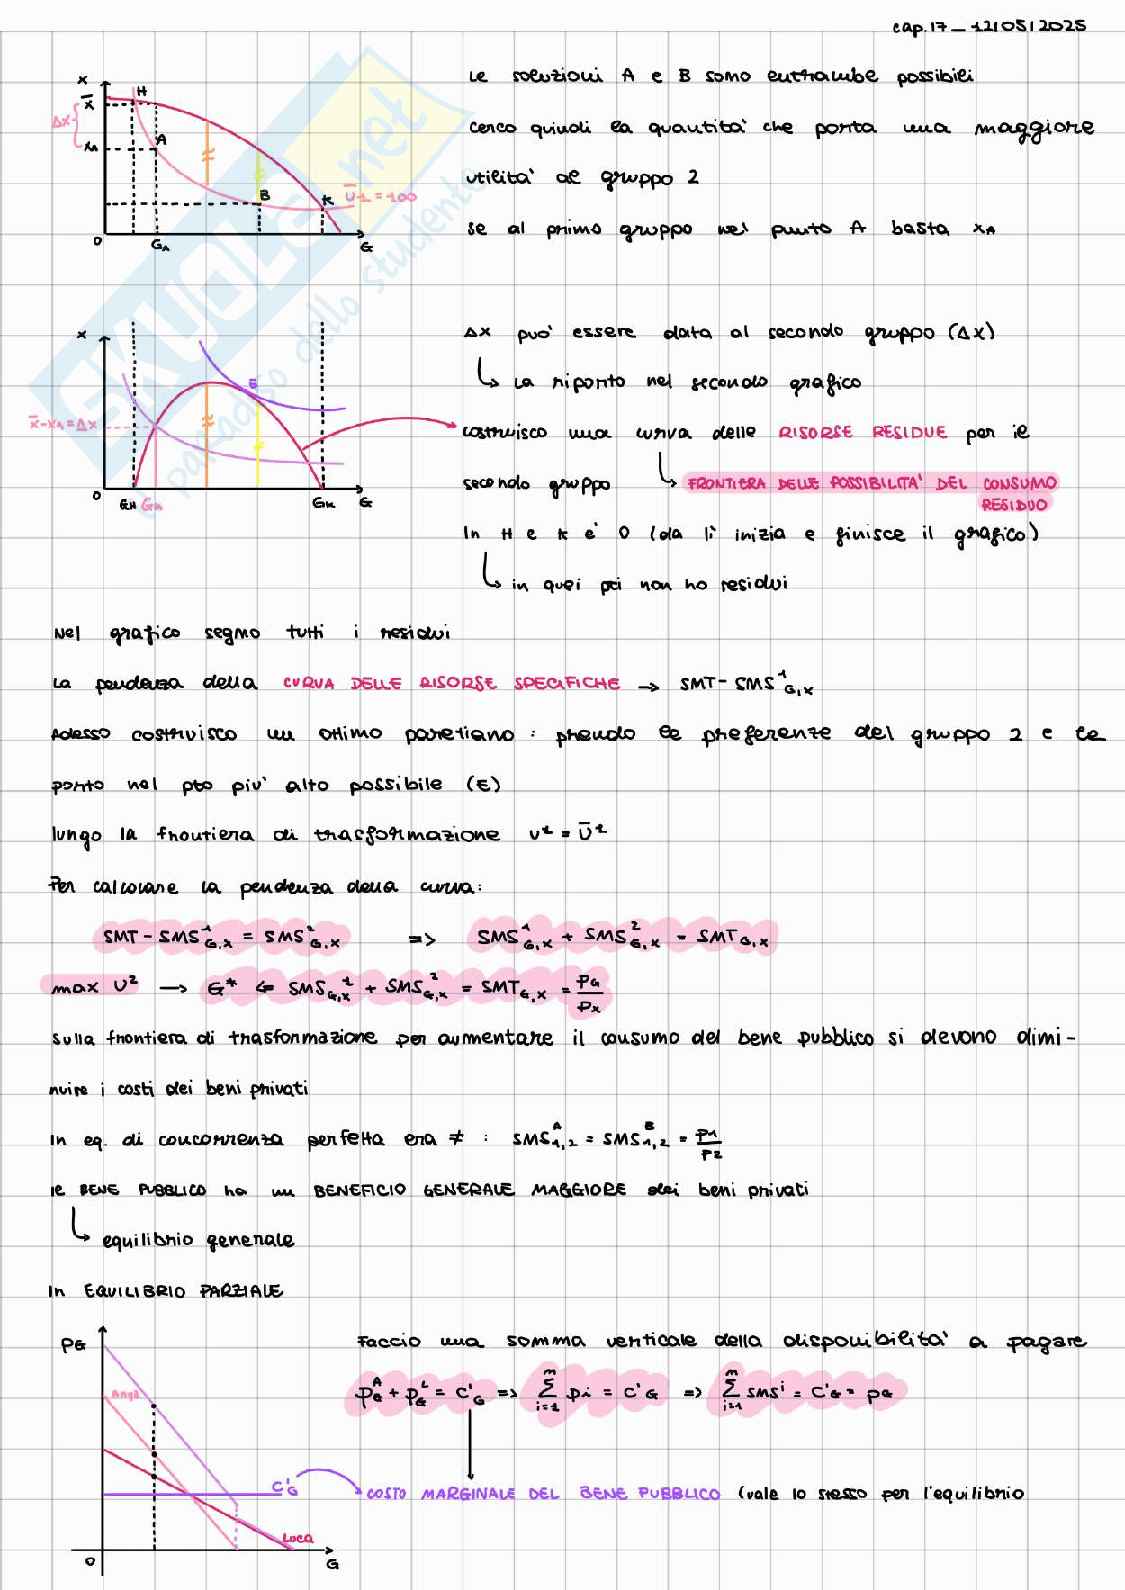 cap.17_12/05/2025
x
H
x̄
Δx
A
xA
B
K
Ū1=100
0
GA
G
Le soluzioni A e B sono entrambe possibili
cerco quindi la quantita' che porta una maggiore
utilita' al gruppo 2
se al primo gruppo nel punto A basta xA
x
E
x̄-xA=Δx
0
GH
GA
GK
G
Δx puo' essere data al secondo gruppo (Δx)
↳ La riporto nel secondo grafico
costruisco una curva delle RISORSE RESIDUE per il
secondo gruppo ↳ FRONTIERA DELLE POSSIBILITA' DEL CONSUMO
RESIDUO
In H e K e' 0 (da li inizia e finisce il grafico)
↳ in quei pti non ho residui
Nel grafico segno tutti i residui
La pendenza della CURVA DELLE RISORSE SPECIFICHE → SMT-SMS¹G,x
Adesso costruisco un ottimo paretiano: prendo le preferenze del gruppo 2 e le
porto nel pto piu' alto possibile (E)
lungo la frontiera di trasformazione U²=Ū²
Per calcolare la pendenza della curva:
SMT-SMS¹G,x = SMS²G,x => SMS¹G,x + SMS²G,x = SMTG,x
max U² → G* ⇐ SMS¹G,x + SMS²G,x = SMTG,x = pG/px
Sulla frontiera di trasformazione per aumentare il consumo del bene pubblico si devono dimi-
nuire i costi dei beni privati
In eq. di concorrenza perfetta era ≠ : SMSᴬ1,2 = SMSᴮ1,2 = p1/p2
Il BENE PUBBLICO ha un BENEFICIO GENERALE MAGGIORE dei beni privati
↳ equilibrio generale
In EQUILIBRIO PARZIALE
PG
Anga
C'G
Luca
0
G
Faccio una somma verticale della disponibilita' a pagare
pGᴬ + pGᴸ = C'G => Σᵐi=1 pi = C'G => Σᵐi=1 SMSⁱ = C'G = pG
COSTO MARGINALE DEL BENE PUBBLICO (vale lo stesso per l'equilibrio
SKUOLA.net
il paradiso dello studente